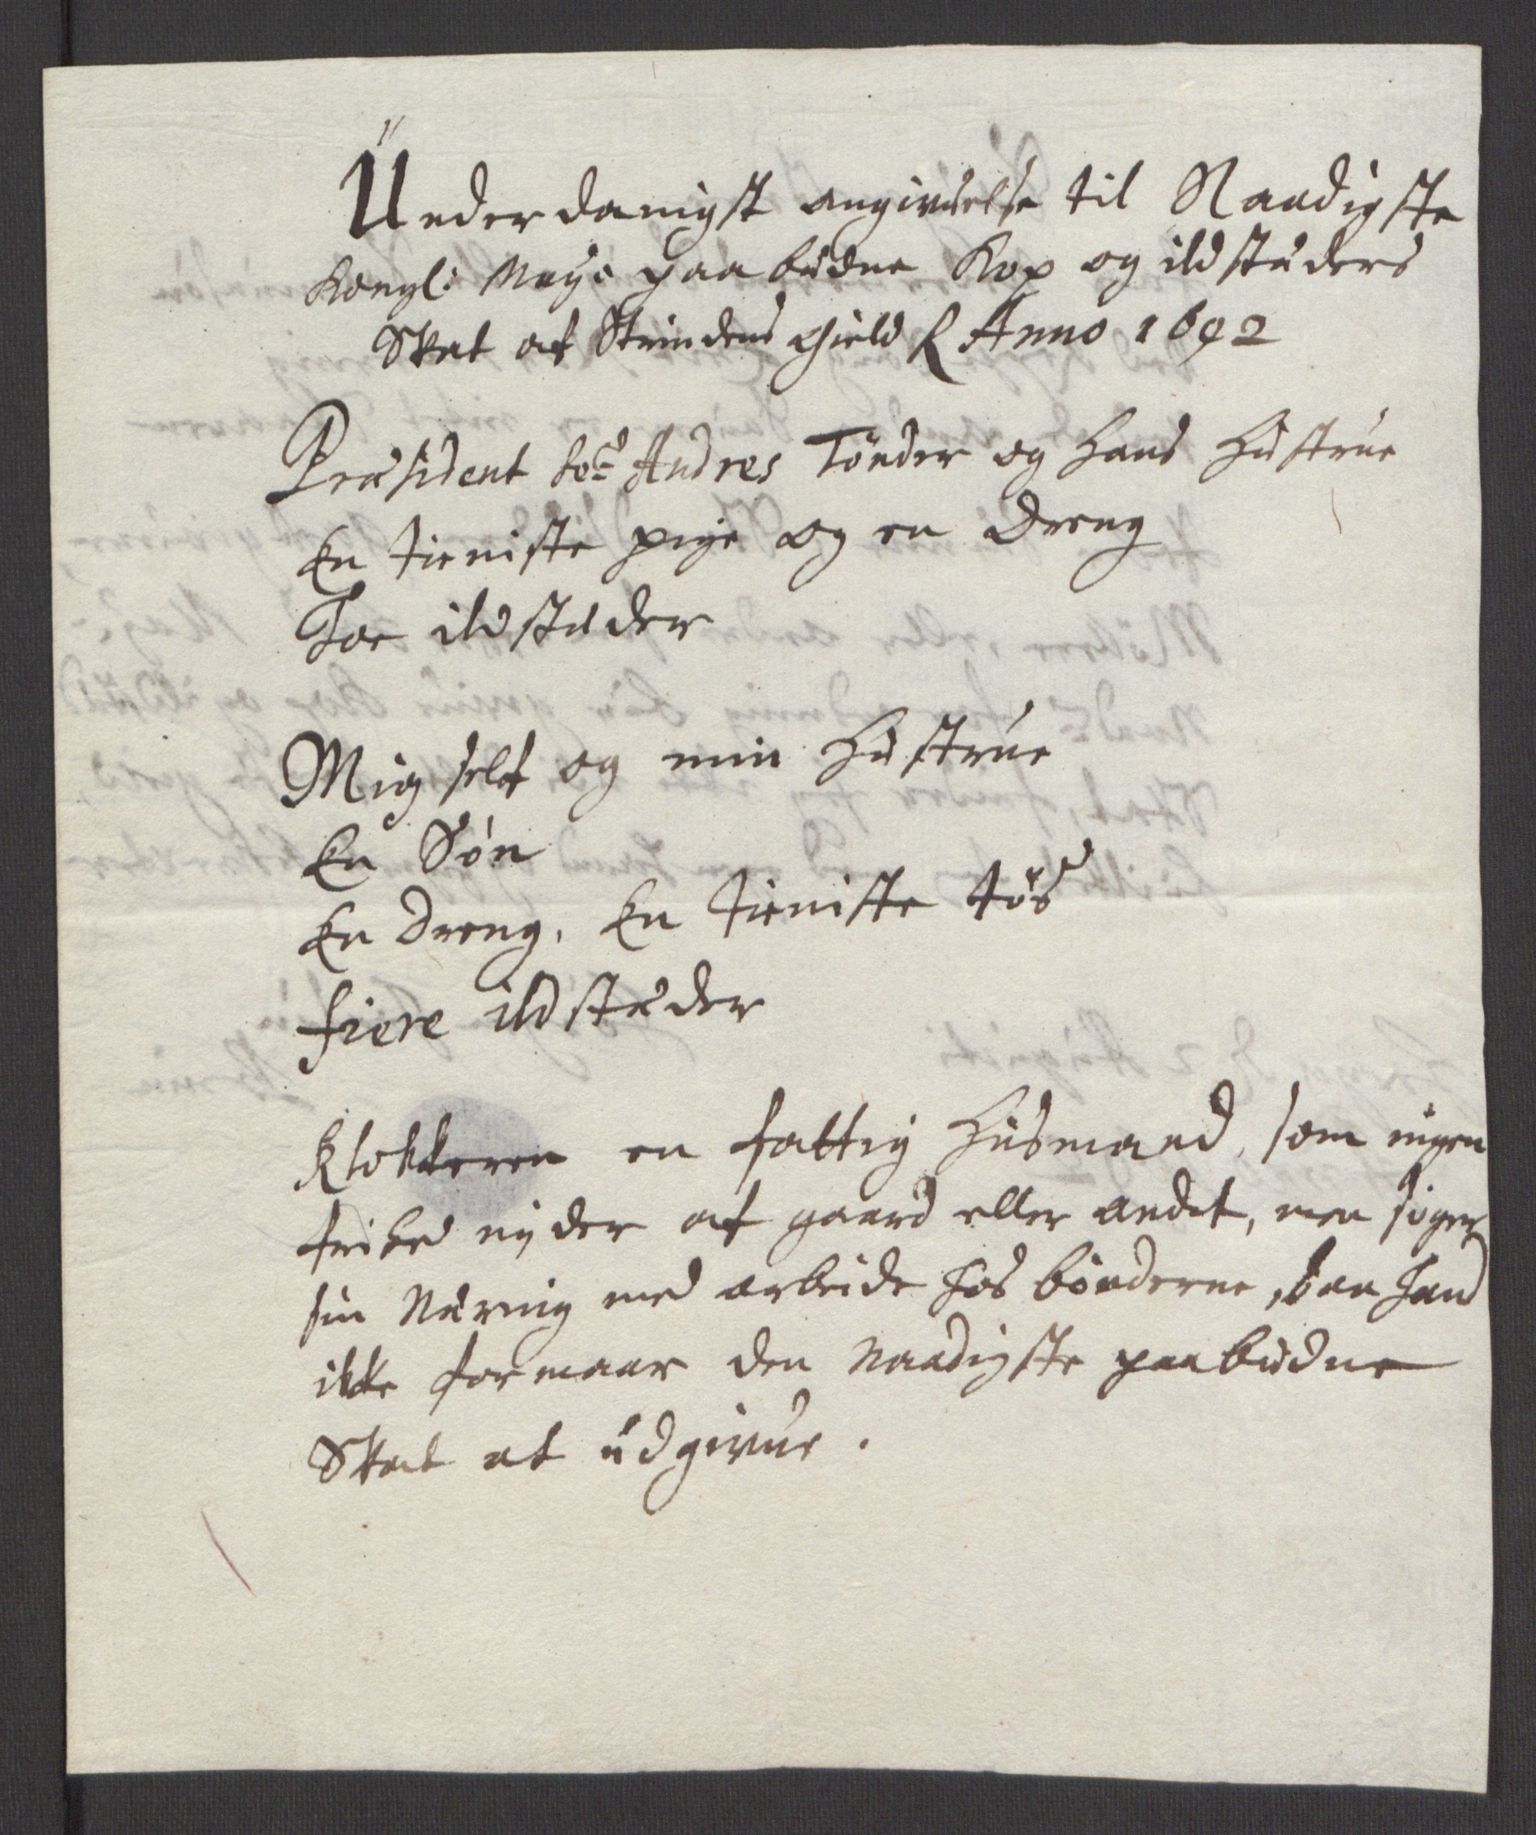 Underdanigst angivuelse til Naadigste
Kongl: Mayᵗˢ paabudne Kop og ildstæders
Skat af Strindens gield Anno 1692
Præsident Andres Tønder og hans Hustrue
En tieniste pige og en Dreng
Toe ildstæder
Mig self og min Hustrue
En Søn
En Dreng, En tieniste tøs
fiere ildstæder
Klokkeren en fattig Husmand, som ingen
frihed nyder af gaard eller andet, men søger
sin Næring med arbeide hos bønderne, saa hand
ikke formaar den Naadigste paabudne
Skat at udgivue.